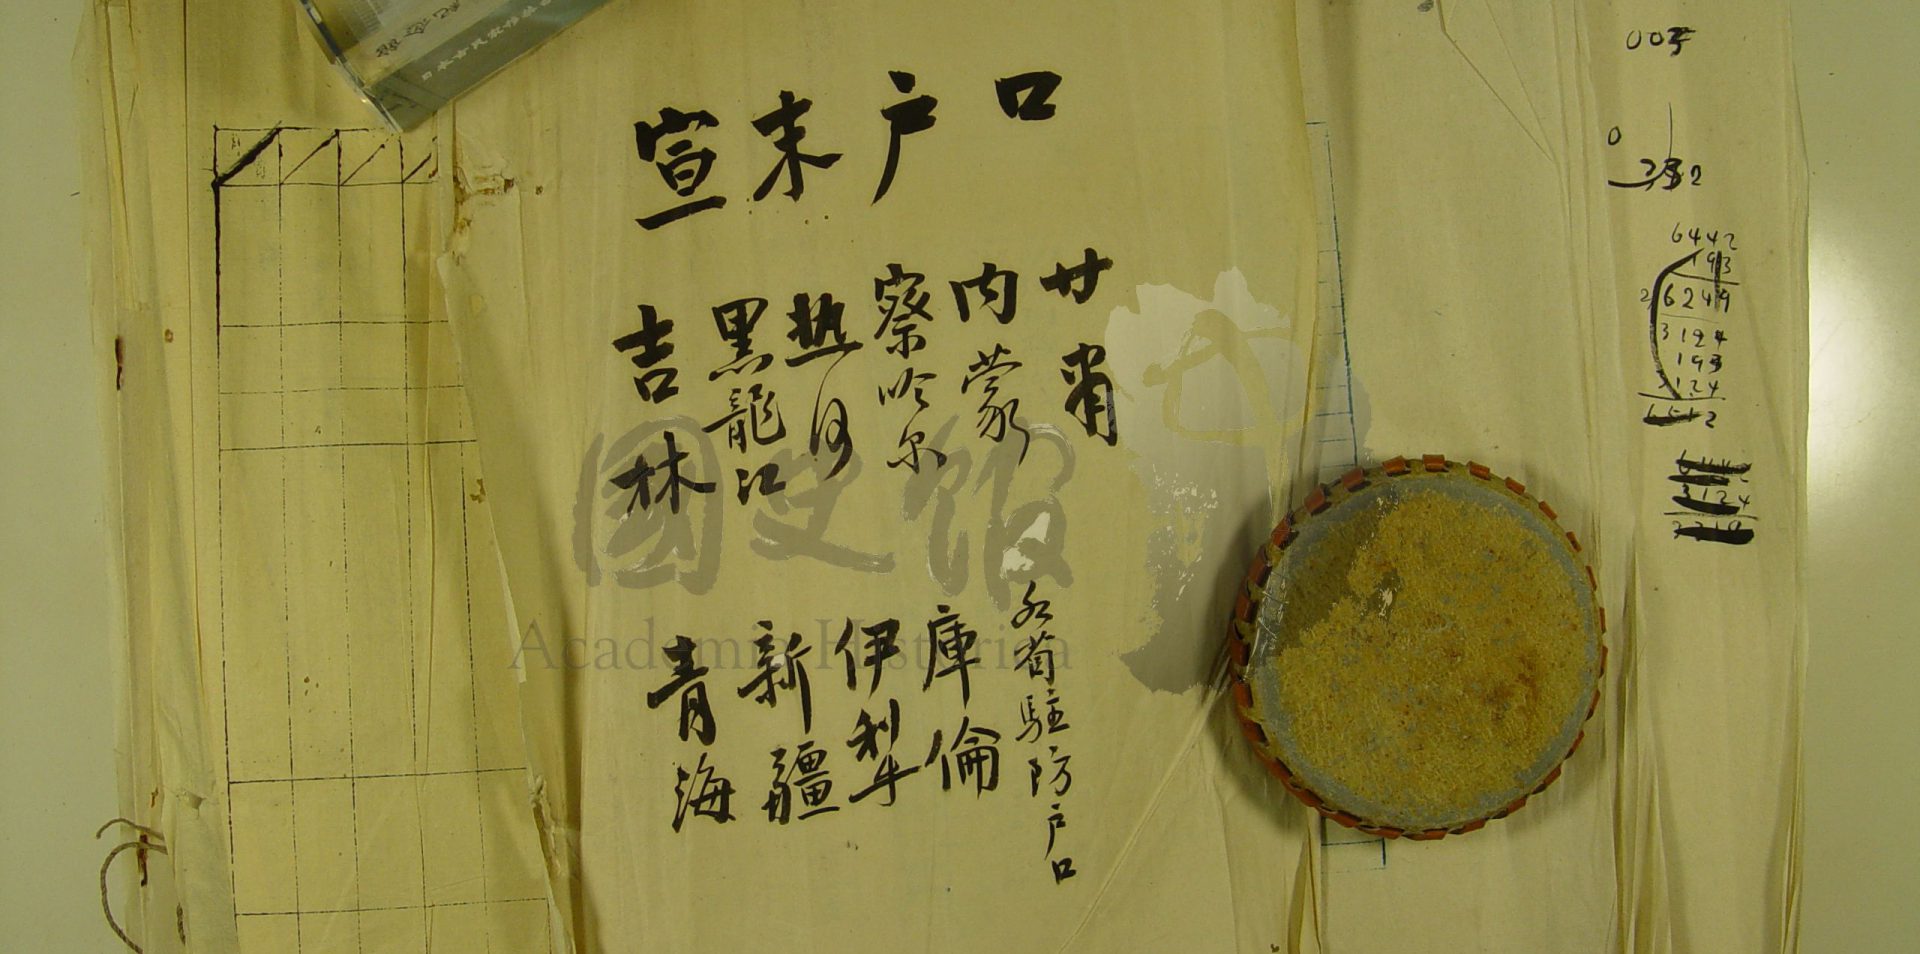 宣末户口
吉林
黑龍江
热河
察哈尔
内蒙
甘肃
青海
新疆
伊犁
庫倫
各省駐防户口
國史館
Academia Historica
6442
193
2 6249
3124
193
3124